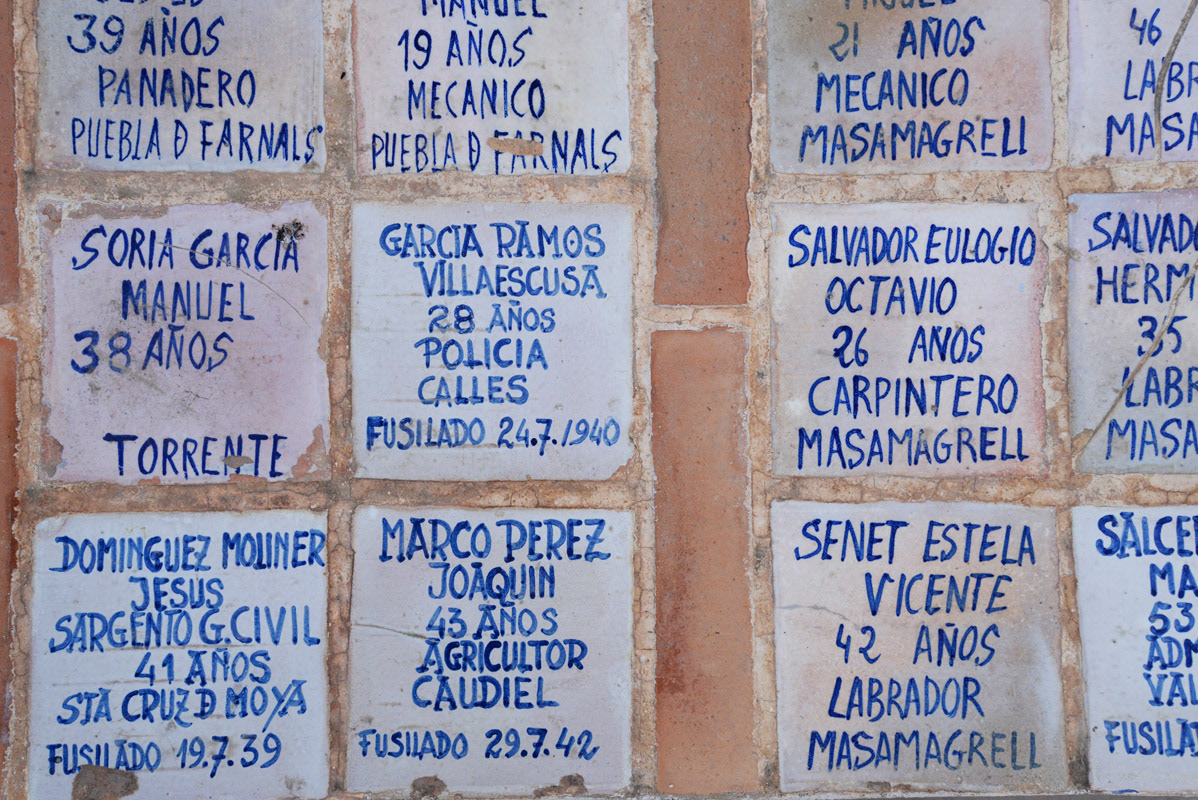 39 AÑOS
PANADERO
PUEBLA D FARNALS
MANUEL
19 AÑOS
MECANICO
PUEBLA D FARNALS
21 AÑOS
MECANICO
MASAMAGRELL
46
LABR
MASA
SORIA GARCIA
MANUEL
38 AÑOS
TORRENTE
GARCIA RAMOS
VILLAESCUSA
28 AÑOS
POLICIA
CALLES
FUSILADO 24.7.1940
SALVADOR EULOGIO
OCTAVIO
26 AÑOS
CARPINTERO
MASAMAGRELL
SALVAD
HERM
35
LABR
MASA
DOMINGUEZ MOLINER
JESUS
SARGENTO G.CIVIL
41 AÑOS
STA CRUZ D MOYA
FUSILADO 19.7.39
MARCO PEREZ
JOAQUIN
43 AÑOS
AGRICULTOR
CAUDIEL
FUSILADO 29.7.42
SENET ESTELA
VICENTE
42 AÑOS
LABRADOR
MASAMAGRELL
SALCE
MA
53
ADM
VAL
FUSILA